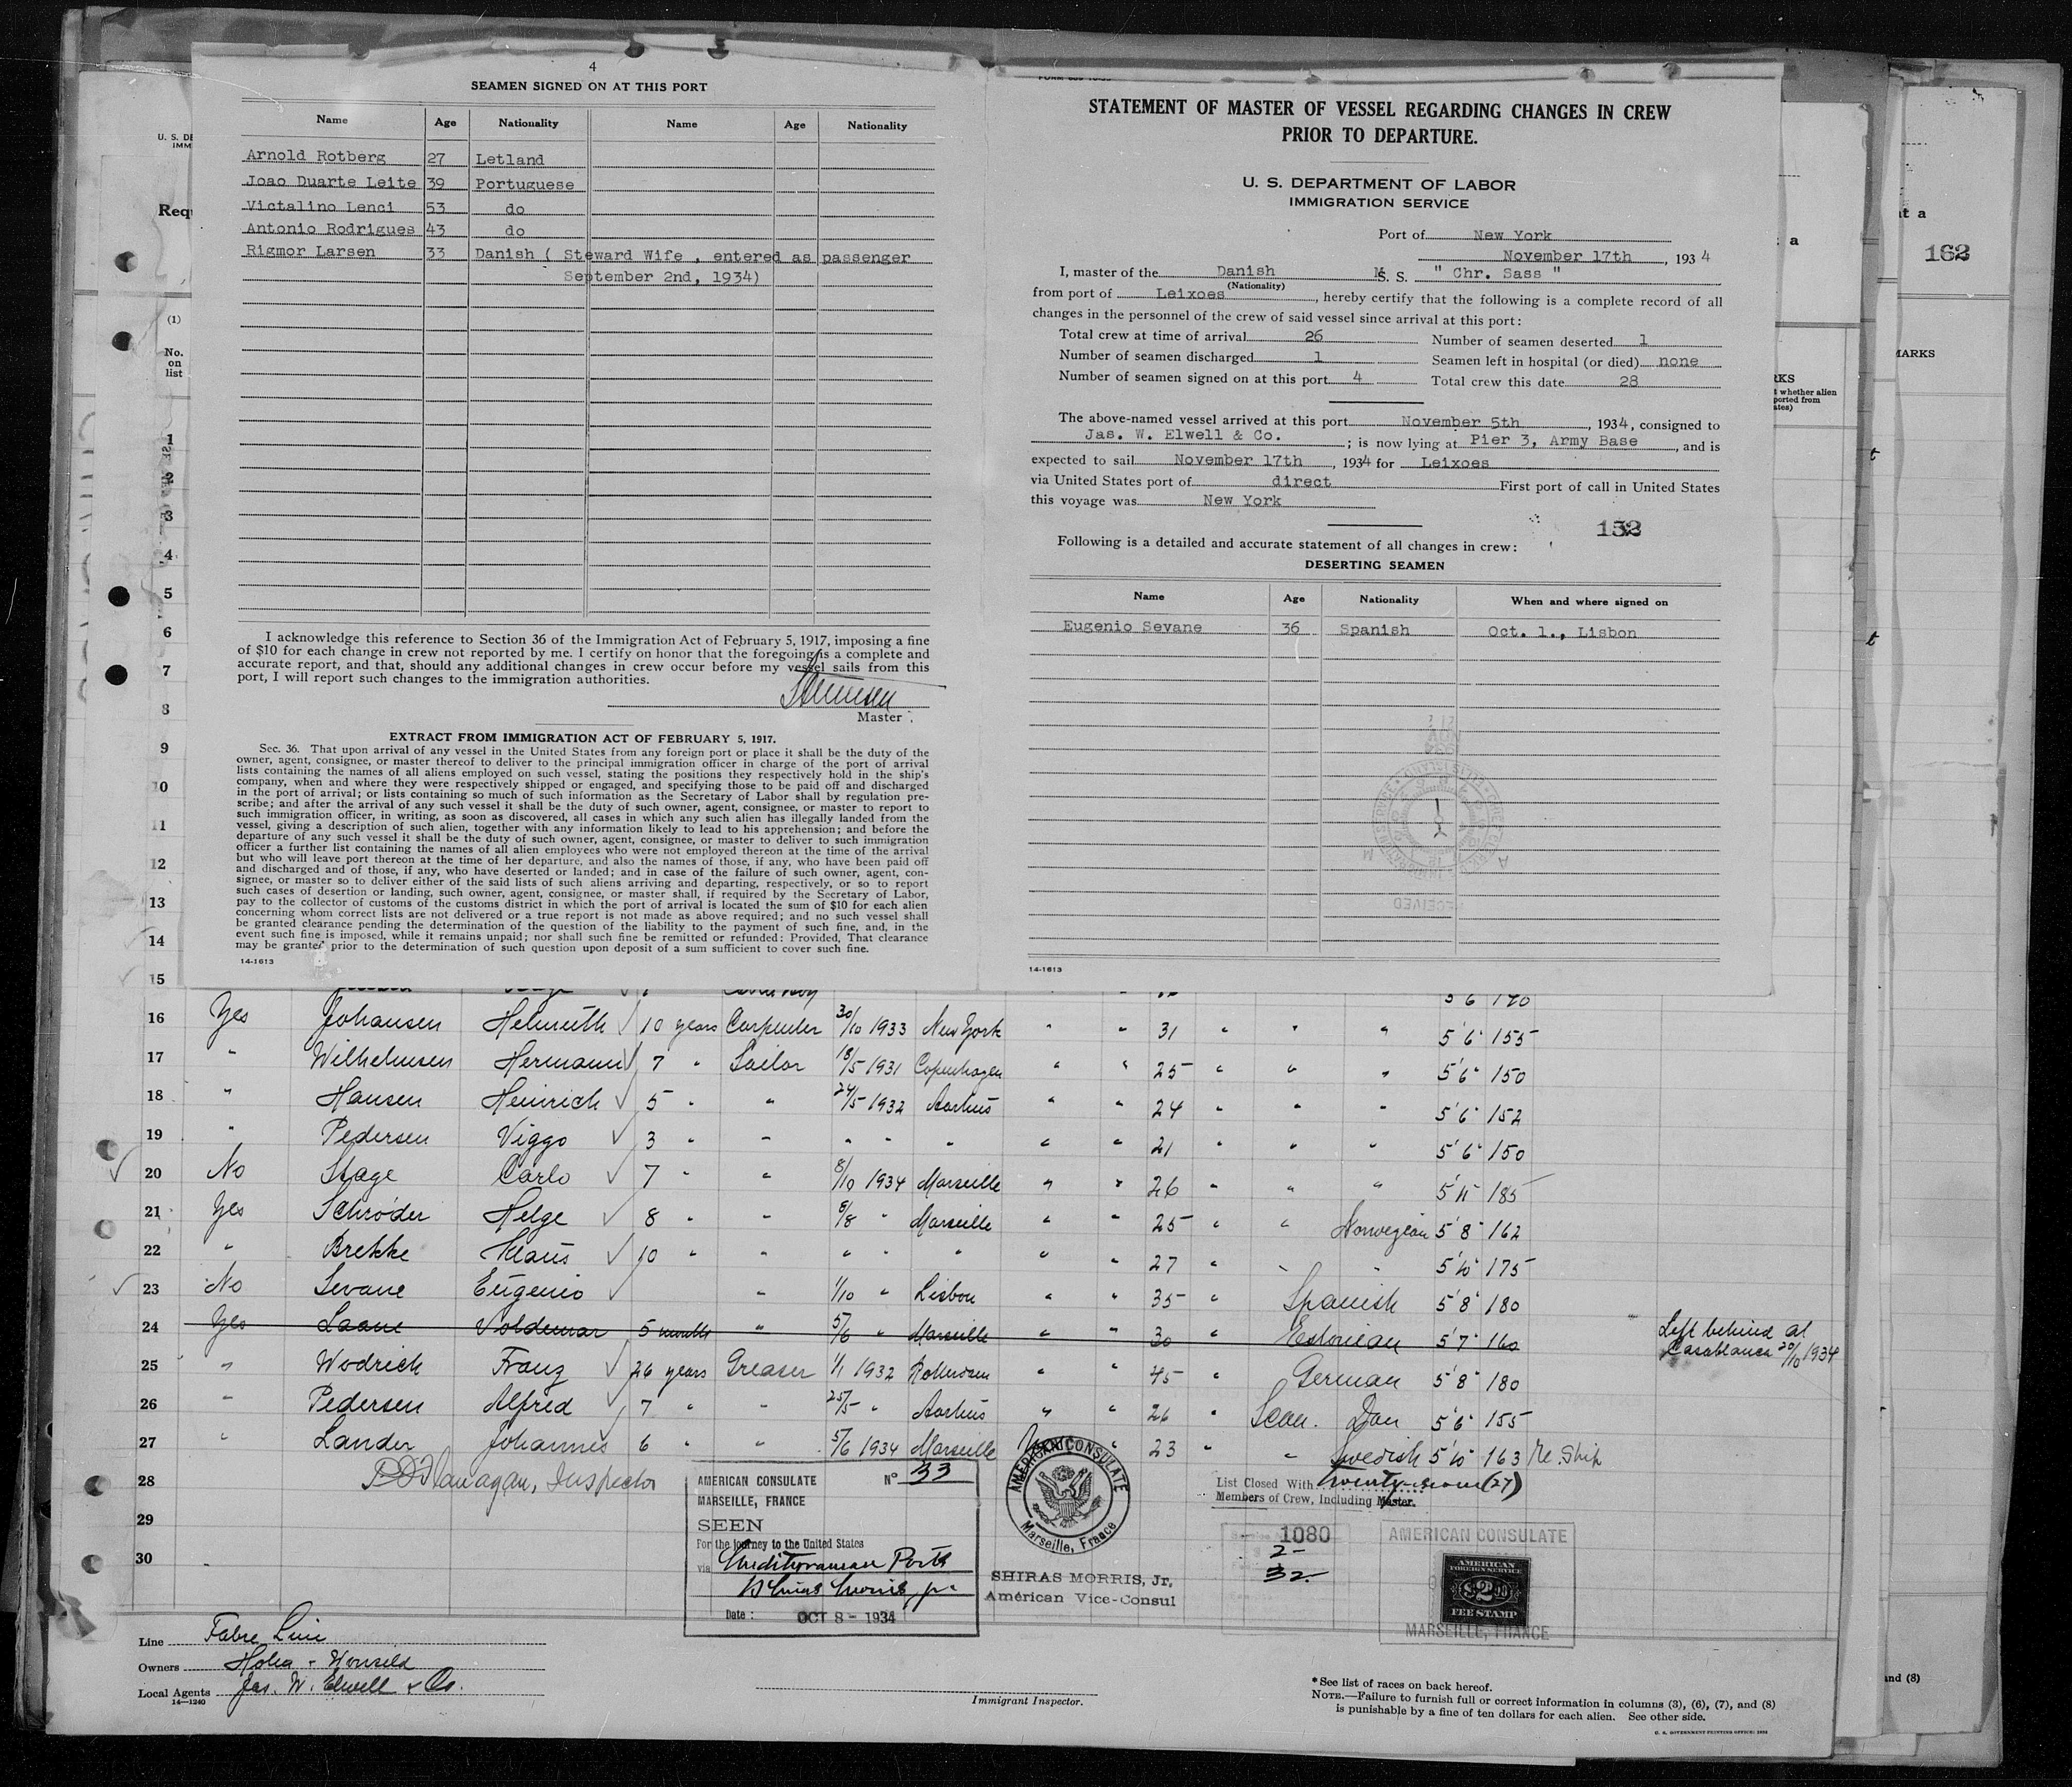 4
SEAMEN SIGNED ON AT THIS PORT
Name Age Nationality Name Age Nationality
Arnold Rotberg 27 Letland
Joao Duarte Leite 39 Portuguese
Victalino Lenci 53 do
Antonio Rodrigues 43 do
Rigmor Larsen 33 Danish ( Steward Wife , entered as passenger
September 2nd, 1934)
I acknowledge this reference to Section 36 of the Immigration Act of February 5, 1917, imposing a fine
of $10 for each change in crew not reported by me. I certify on honor that the foregoing is a complete and
accurate report, and that, should any additional changes in crew occur before my vessel sails from this
port, I will report such changes to the immigration authorities.
Master.
EXTRACT FROM IMMIGRATION ACT OF FEBRUARY 5, 1917.
Sec. 36. That upon arrival of any vessel in the United States from any foreign port or place it shall be the duty of the
owner, agent, consignee, or master thereof to deliver to the principal immigration officer in charge of the port of arrival
lists containing the names of all aliens employed on such vessel, stating the positions they respectively hold in the ship's
company, when and where they were respectively shipped or engaged, and specifying those to be paid off and discharged
in the port of arrival; or lists containing so much of such information as the Secretary of Labor shall by regulation pre-
scribe; and after the arrival of any such vessel it shall be the duty of such owner, agent, consignee, or master to report to
such immigration officer, in writing, as soon as discovered, all cases in which any such alien has illegally landed from the
vessel, giving a description of such alien, together with any information likely to lead to his apprehension; and before the
departure of any such vessel it shall be the duty of such owner, agent, consignee, or master to deliver to such immigration
officer a further list containing the names of all alien employees who were not employed thereon at the time of the arrival
but who will leave port thereon at the time of her departure, and also the names of those, if any, who have been paid off
and discharged and of those, if any, who have deserted or landed; and in case of the failure of such owner, agent, con-
signee, or master so to deliver either of the said lists of such aliens arriving and departing, respectively, or so to report
such cases of desertion or landing, such owner, agent, consignee, or master shall, if required by the Secretary of Labor,
pay to the collector of customs of the customs district in which the port of arrival is located the sum of $10 for each alien
concerning whom correct lists are not delivered or a true report is not made as above required; and no such vessel shall
be granted clearance pending the determination of the question of the liability to the payment of such fine, and, in the
event such fine is imposed, while it remains unpaid; nor shall such fine be remitted or refunded: Provided, That clearance
may be granted prior to the determination of such question upon deposit of a sum sufficient to cover such fine.
14-1613
STATEMENT OF MASTER OF VESSEL REGARDING CHANGES IN CREW
PRIOR TO DEPARTURE.
U. S. DEPARTMENT OF LABOR
IMMIGRATION SERVICE
Port of New York
November 17th, 1934
I, master of the Danish M. S. " Chr. Sass "
(Nationality)
from port of Leixoes, hereby certify that the following is a complete record of all
changes in the personnel of the crew of said vessel since arrival at this port:
Total crew at time of arrival 26 Number of seamen deserted 1
Number of seamen discharged 1 Seamen left in hospital (or died) none
Number of seamen signed on at this port 4 Total crew this date 28
The above-named vessel arrived at this port November 5th, 1934, consigned to
Jas. W. Elwell & Co.; is now lying at Pier 3, Army Base, and is
expected to sail November 17th, 1934 for Leixoes
via United States port of direct First port of call in United States
this voyage was New York
Following is a detailed and accurate statement of all changes in crew:
DESERTING SEAMEN
Name Age Nationality When and where signed on
Eugenio Sevane 36 Spanish Oct. 1., Lisbon
14-1613
162
(1)
No.
on
list
1
2
3
4
5
6
7
8
9
10
11
12
13
14
15
16 Yes Johansen Helmuth 10 years Carpenter 30/10 1933 New York " " 31 " " " 5'6" 155
17 " Wilhelmsen Hermann 7 " Sailor 18/5 1931 Copenhagen " " 25 " " " 5'6" 150
18 " Hansen Heinrich 5 " " 24/5 1932 Aarhus " " 24 " " " 5'6" 152
19 " Pedersen Viggo 3 " " " " " " " 21 " " " 5'6" 150
20 No Stage Carlo 7 " " 8/10 1934 Marseille " " 26 " " " 5'11" 185
21 Yes Schröder Helge 8 " " 6/8 " Marseille " " 25 " " Norwegian 5'8" 162
22 " Brekke Klaus 10 " " " " " " " 27 " " " 5'10" 175
23 No Sevane Eugenio " 1/10 " Lisbon " " 35 " Spanish 5'8" 180
24 Yes Laane Voldemar 5 months " 5/6 " Marseille " " 30 " Estonian 5'7" 160 Left behind at
Casablanca 20/10 1934
25 " Wodrich Franz 26 years Greaser 1/1 1932 " 45 " German 5'8" 180
26 " Pedersen Alfred 7 " " 25/5 " Aarhus " " 26 " Scan. Dan 5'6" 155
27 " Lander Johannes 6 " " 5/6 1934 Marseille " 23 " " Swedish 5'10" 163
28 Flanagan, Inspector
29
30
AMERICAN CONSULATE No 33
MARSEILLE, FRANCE
SEEN
For the journey to the United States
via Mediterranean Ports
Shiras Morris, Jr.
Date: OCT 8 - 1934
AMERICAN CONSULATE
Marseille, France
SHIRAS MORRIS, Jr.
American Vice-Consul
List Closed With Twenty-seven (27)
Members of Crew, Including Master.
1080
2-
32-
AMERICAN CONSULATE
AMERICAN
FOREIGN SERVICE
$2.00
FEE STAMP
MARSEILLE, FRANCE
Line Fabre Line
Owners
Local Agents Jas. W. Elwell & Co.
14-1240
Immigrant Inspector.
*See list of races on back hereof.
NOTE.—Failure to furnish full or correct information in columns (3), (6), (7), and (8)
is punishable by a fine of ten dollars for each alien. See other side.
U. S. GOVERNMENT PRINTING OFFICE
and (8)